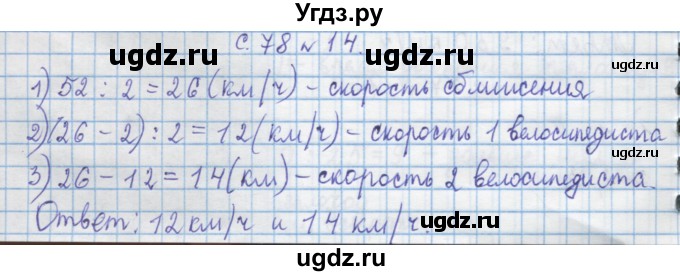 Угдз.ру
с. 78 № 14.
gdz.ru
1) 52 : 2 = 26 (км/ч) - скорость сближения
2) (26 - 2) : 2 = 12 (км/ч) - скорость 1 велосипедиста
3) 26 - 12 = 14 (км) - скорость 2 велосипедиста.
gdz.ru
Ответ: 12 км/ч и 14 км/ч.